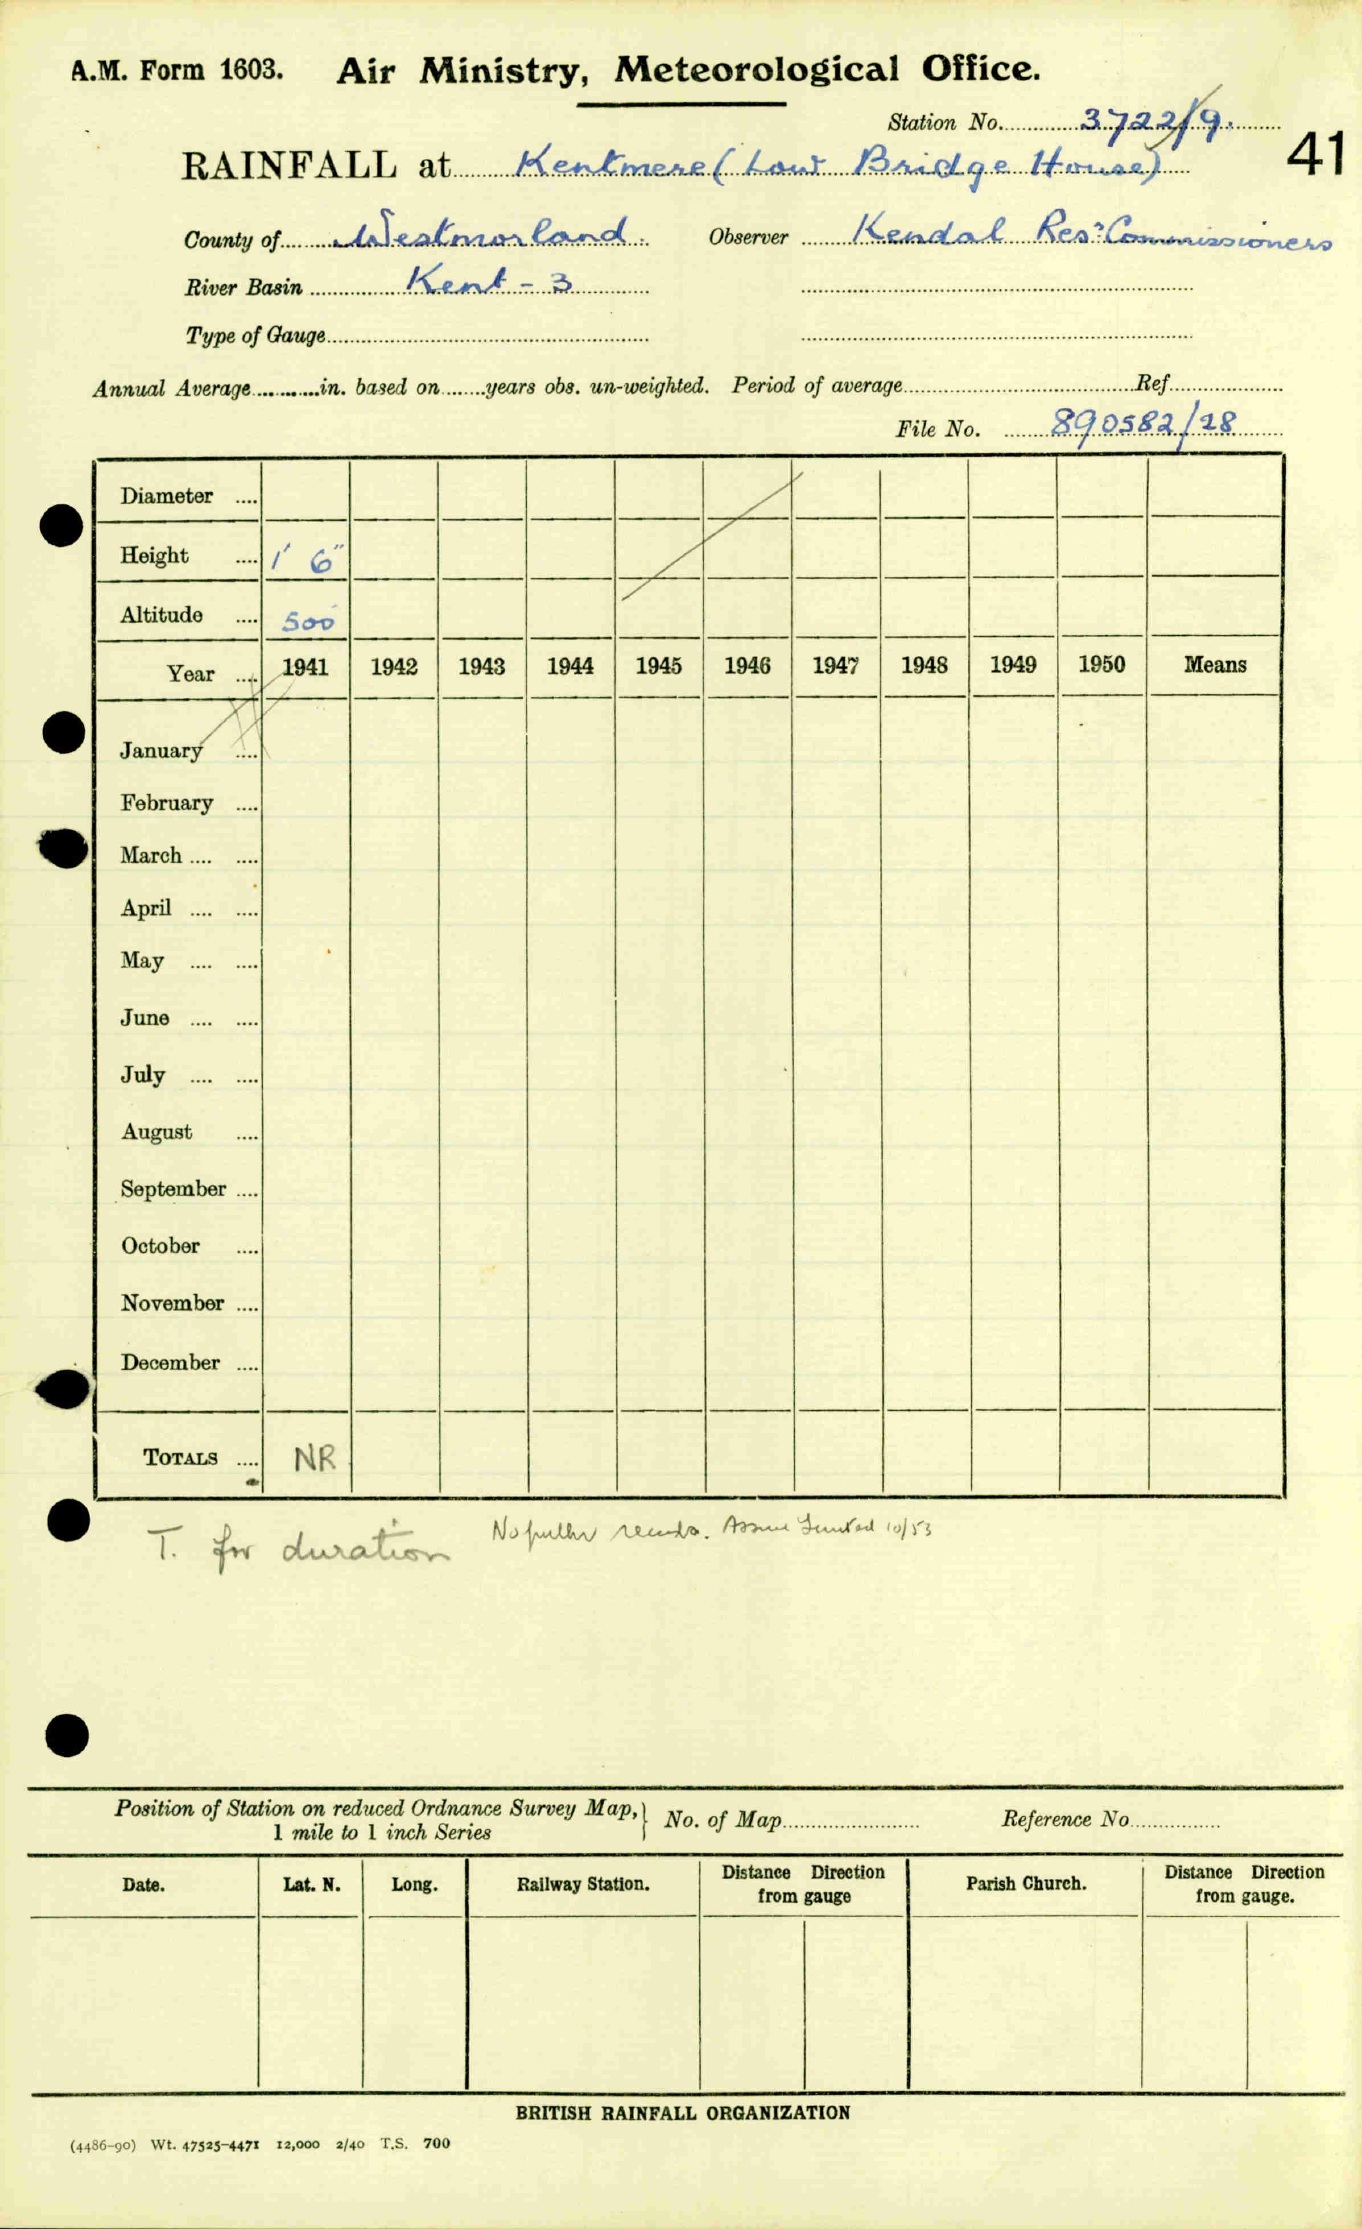 A.M. Form 1603. Air Ministry, Meteorological Office.
Station No. 3722/9.
41
RAINFALL at Kentmere (Low Bridge House)
County of Westmorland. Observer Kendal Resr Commissioners
River Basin Kent - 3
Type of Gauge
Annual Average in. based on years obs. un-weighted. Period of average Ref
File No. 890582/28
Diameter ....
Height .... 1' 6"
Altitude .... 500'
Year .... 1941 1942 1943 1944 1945 1946 1947 1948 1949 1950 Means
January ....
February ....
March .... ....
April .... ....
May .... ....
June .... ....
July .... ....
August ....
September ....
October ....
November ....
December ....
TOTALS .... NR
T. for duration
No further records. Assume 10/53
Position of Station on reduced Ordnance Survey Map, } No. of Map Reference No
1 mile to 1 inch Series
Date. Lat. N. Long. Railway Station. Distance Direction from gauge Parish Church. Distance Direction from gauge.
BRITISH RAINFALL ORGANIZATION
(4486-90) Wt. 47525-4471 12,000 2/40 T.S. 700